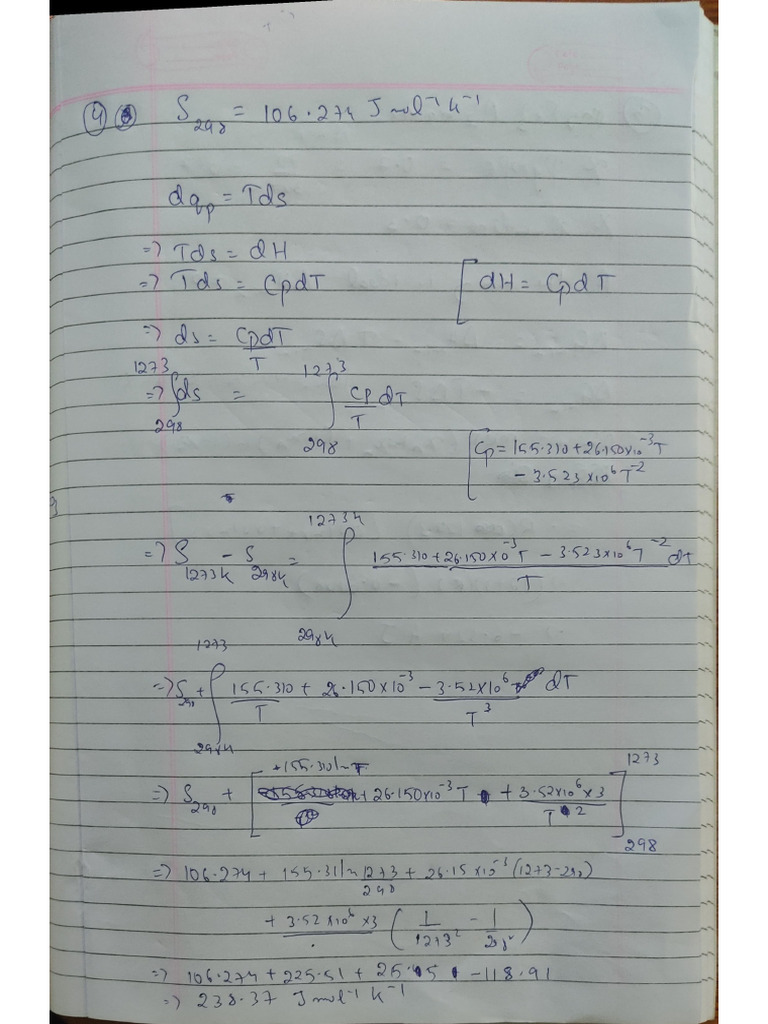 ④ S₂₉₈ = 106.274 J mol⁻¹ k⁻¹
dqp = Tds
=> Tds = dH
=> Tds = CpdT [dH = CpdT
=> ds = CpdT/T
=> ∫₂₉₈¹²⁷³ ds = ∫₂₉₈¹²⁷³ Cp/T dT
[Cp = 155.310 + 26.150x10⁻³T
- 3.523x10⁶T⁻²
=> S₁₂₇₃ₖ - S₂₉₈ₖ = ∫₂₉₈ₖ¹²⁷³ᵏ (155.310 + 26.150x10⁻³T - 3.523x10⁶T⁻²)/T dT
=> S₂₉₈ + ∫₂₉₈ₖ¹²⁷³ 155.310/T + 26.150x10⁻³ - 3.52x10⁶/T³ dT
=> S₂₉₈ + [+155.310lnT + 26.150x10⁻³T + 3.52x10⁶x3/T²]₂₉₈¹²⁷³
=> 106.274 + 155.31ln 1273/298 + 26.15x10⁻³(1273-298)
+ 3.52x10⁶x3 (1/1273² - 1/298²)
=> 106.274 + 225.51 + 25.5 - 118.91
=> 238.37 J mol⁻¹ k⁻¹